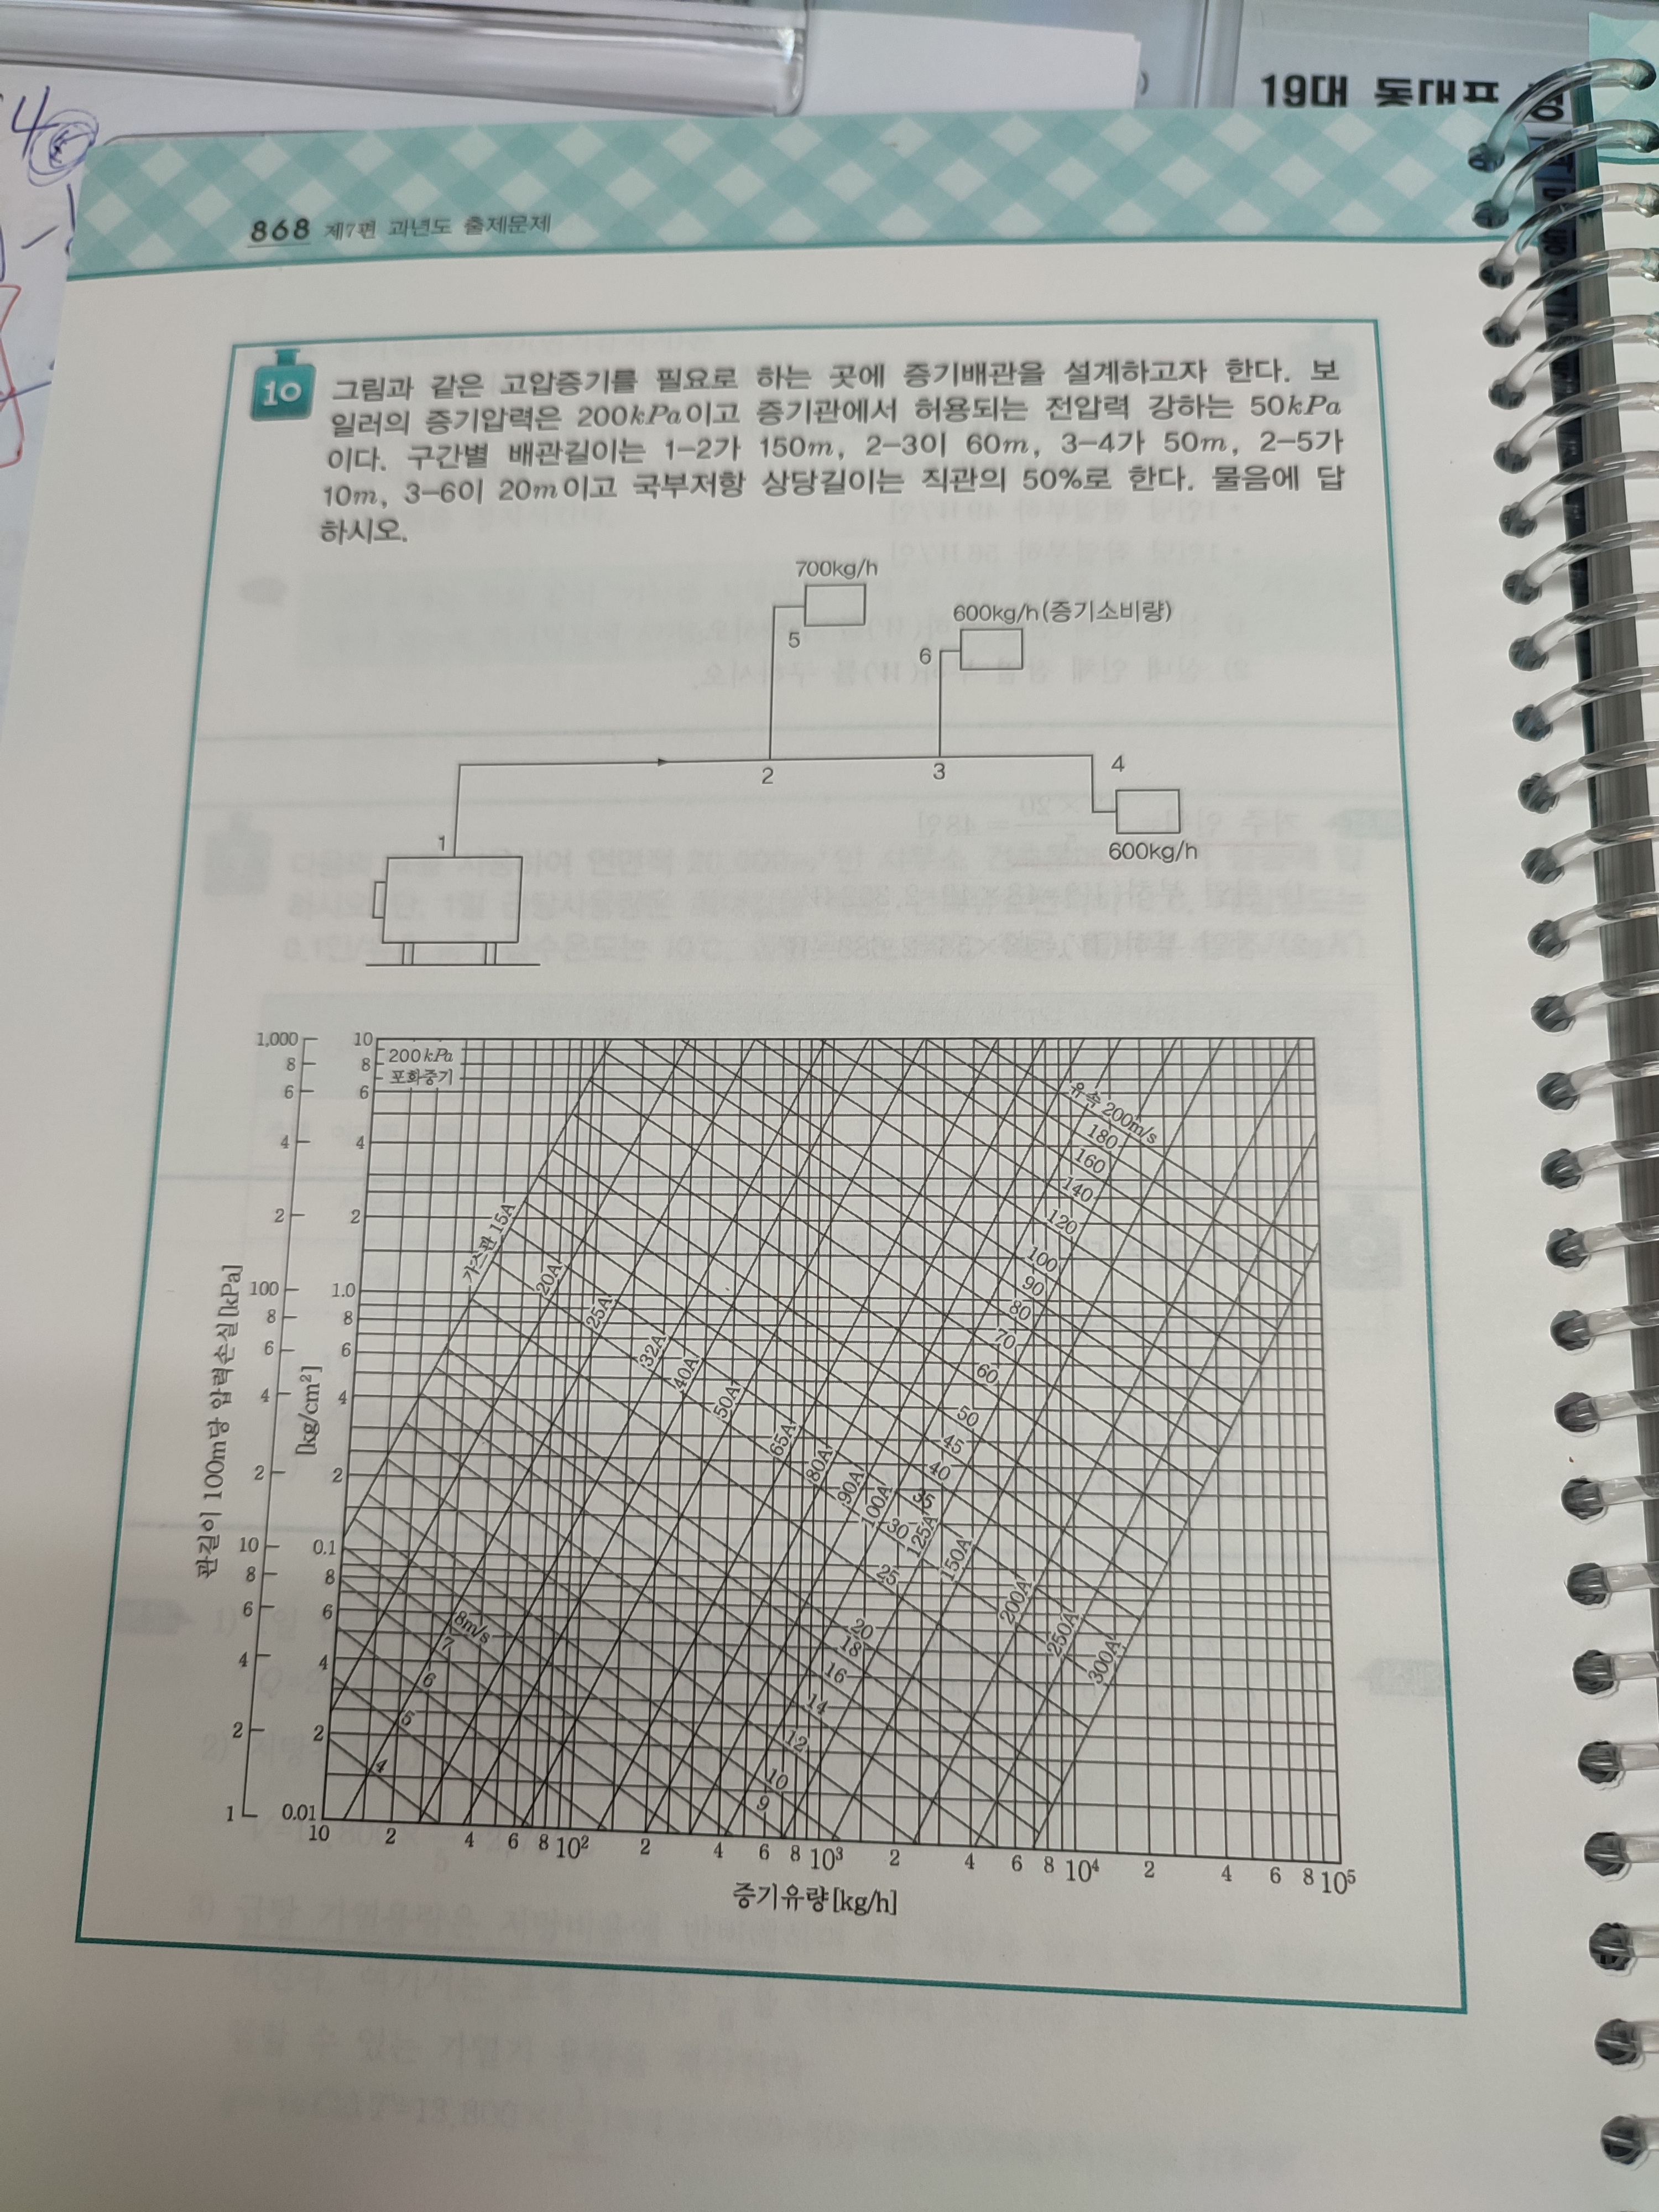 19대 동대표
868 제7편 과년도 출제문제
10 그림과 같은 고압증기를 필요로 하는 곳에 증기배관을 설계하고자 한다. 보
일러의 증기압력은 200kPa이고 증기관에서 허용되는 전압력 강하는 50kPa
이다. 구간별 배관길이는 1-2가 150m, 2-3이 60m, 3-4가 50m, 2-5가
10m, 3-6이 20m이고 국부저항 상당길이는 직관의 50%로 한다. 물음에 답
하시오.
700kg/h
600kg/h(증기소비량)
5
6
2
3
4
1
600kg/h
1,000
8
6
4
2
100
8
6
4
2
10
8
6
4
2
1
10
8
6
4
2
1.0
8
6
4
2
0.1
8
6
4
2
0.01
관길이 100m당 압력손실[kPa]
[kg/cm²]
200kPa
포화증기
유속 200m/s
180
160
140
120
100
90
80
70
60
50
45
40
35
30
25
20
18
16
14
12
10
9
8m/s
7
6
5
4
가스관 15A
20A
25A
32A
40A
50A
65A
80A
90A
100A
125A
150A
200A
250A
300A
10 2 4 6 8 10² 2 4 6 8 10³ 2 4 6 8 10⁴ 2 4 6 8 10⁵
증기유량[kg/h]